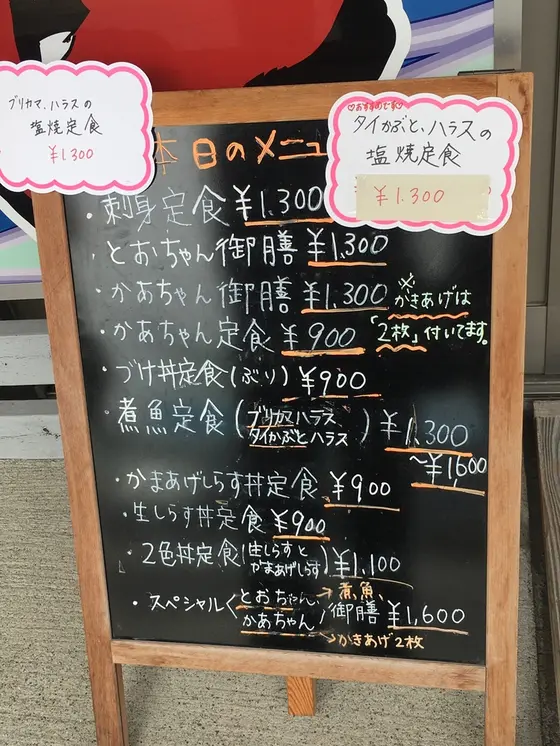 ブリカマ、ハラスの
塩焼定食
¥1.300
♡おすすめです♡
タイかぶと、ハラスの
塩焼定食
¥1.300
本日のメニュ
・刺身定食 ¥1.300
・とおちゃん御膳 ¥1.300
・かあちゃん御膳 ¥1.300
・かあちゃん定食 ¥900
※かきあげは
「2枚」付いてます。
・づけ丼定食(ぶり) ¥900
・煮魚定食(ブリカマハラス タイかぶとハラス) ¥1.300
~¥1,600
・かまあげしらす丼定食 ¥900
・生しらす丼定食 ¥900
・2色丼定食(生しらすと かまあげしらす) ¥1,100
・スペシャル(とおちゃん、かあちゃん)御膳 ¥1,600
→煮魚、
→かきあげ2枚